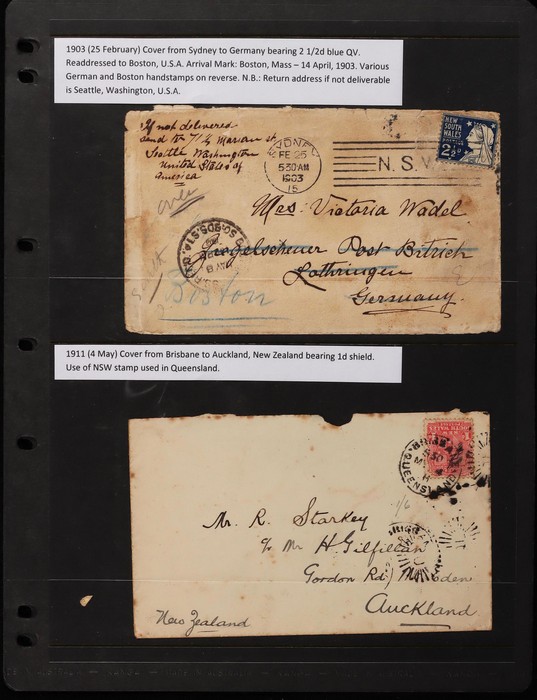 1903 (25 February) Cover from Sydney to Germany bearing 2 1/2d blue QV.
Readdressed to Boston, U.S.A. Arrival Mark: Boston, Mass – 14 April, 1903. Various
German and Boston handstamps on reverse. N.B.: Return address if not deliverable
is Seattle, Washington, U.S.A.
If not delivered
send to 71 Marion st
Seattle Washington
United States of
America
over
SYDNEY
FE 25
5 30 AM
1903
15
N.S.W
NEW
SOUTH
WALES
2½
Mrs. Victoria Wadel
Post Bitrich
Lothringen
Germany.
Boston
1911 (4 May) Cover from Brisbane to Auckland, New Zealand bearing 1d shield.
Use of NSW stamp used in Queensland.
BRISBANE
QUEENSLAND
Mr. R. Starkey
c/o Mr H. Gilfillan
Gordon Rd,
Auckland
New Zealand